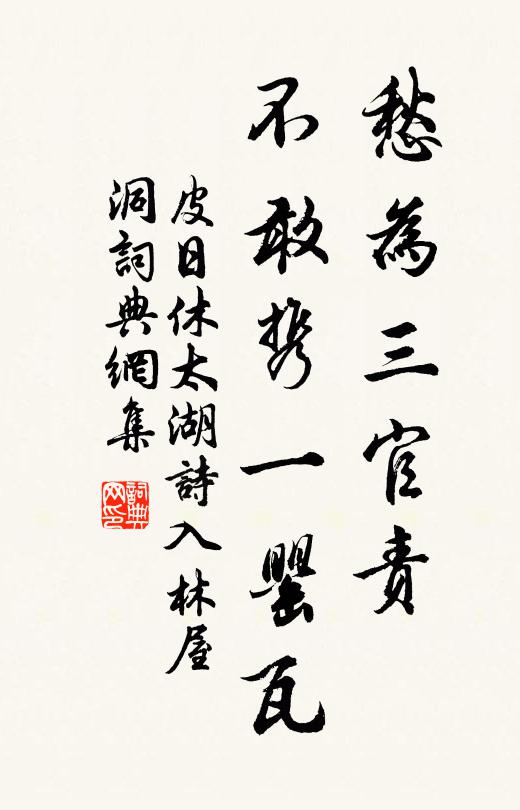 愁為三官責
不敢携一罌瓦
皮日休太湖詩入林屋
洞詞典網集
詞典
网印